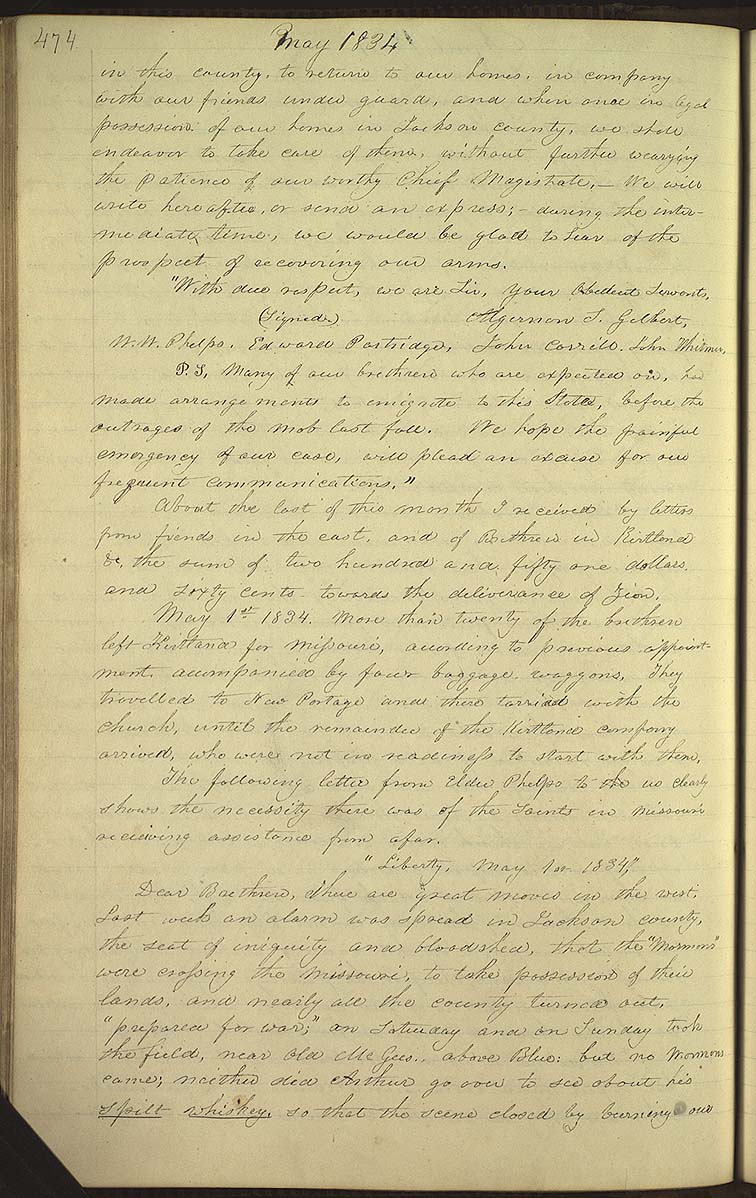 474
May 1834
in this county, to return to our homes, in company
with our friends under guard, and when once in legal
possession of our homes in Jackson county, we shall
endeavor to take care of them, without further wearying
the patience of our worthy Chief Magistrate,— We will
write hereafter, or send an express;— during the inter-
mediate time, we would be glad to hear of the
prospect of recovering our arms.
"With due respect, we are Sir, Your Obedient Servants,
(Signed) Algernon S. Gilbert,
W. W. Phelps. Edward Partridge, John Corrill. John Whitmer,
P.S, Many of our brethren who are expected on, had
made arrangements to emigrate to this State, before the
outrages of the mob last fall. We hope the painful
emergency of our case, will plead an excuse for our
frequent communications."
About the last of this month I received by letters
from friends in the east, and of Brethren in Kirtland
&c, the sum of two hundred and fifty one dollars
and sixty cents towards the deliverance of Zion.
May 1st 1834. More than twenty of the brethren
left Kirtland for Missouri, according to previous appoint-
ment, accompanied by four baggage waggons. They
travelled to New Portage and there tarried with the
church, until the remainder of the Kirtland company
arrived, who were not in readiness to start with them.
The following letter from Elder Phelps to the us clearly
shows the necessity there was of the Saints in Missouri
recieving assistance from afar.
"Liberty, May 1st 1834,"
Dear Brethren, There are great moves in the west.
Last week an alarm was spread in Jackson county,
the seat of iniquity and bloodshed, that the "Mormons"
were crossing the Missouri, to take possession of their
lands, and nearly all the county turned out,
"prepared for war;" on Saturday and on Sunday took
the field, near old McGees., above Blue: but no Mormons
came; neither did Arthur go over to see about his
spilt whiskey, so that the scene closed by burning our